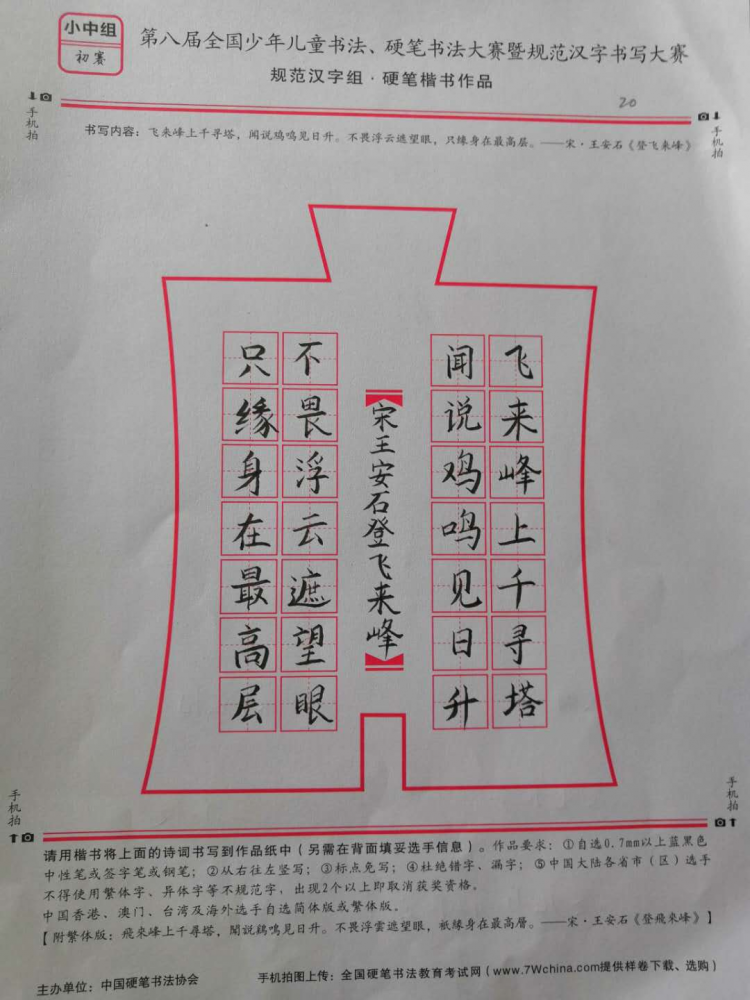 小中组
初赛
第八届全国少年儿童书法、硬笔书法大赛暨规范汉字书写大赛
规范汉字组·硬笔楷书作品
20
手机拍
手机拍
书写内容：飞来峰上千寻塔，闻说鸡鸣见日升。不畏浮云遮望眼，只缘身在最高层。——宋·王安石《登飞来峰》
飞来峰上千寻塔
闻说鸡鸣见日升
宋王安石登飞来峰
不畏浮云遮望眼
只缘身在最高层
手机拍
手机拍
请用楷书将上面的诗词书写到作品纸中（另需在背面填妥选手信息）。作品要求：①自选0.7mm以上蓝黑色
中性笔或签字笔或钢笔；②从右往左竖写；③标点免写；④杜绝错字、漏字；⑤中国大陆各省市（区）选手
不得使用繁体字、异体字等不规范字，出现2个以上即取消获奖资格。
中国香港、澳门、台湾及海外选手自选简体版或繁体版。
【附繁体版：飛來峰上千尋塔，聞說鷄鳴見日升。不畏浮雲遮望眼，衹緣身在最高層。——宋·王安石《登飛來峰》】
主办单位：中国硬笔书法协会
手机拍图上传：全国硬笔书法教育考试网（www.7Wchina.com提供样卷下载、选购）